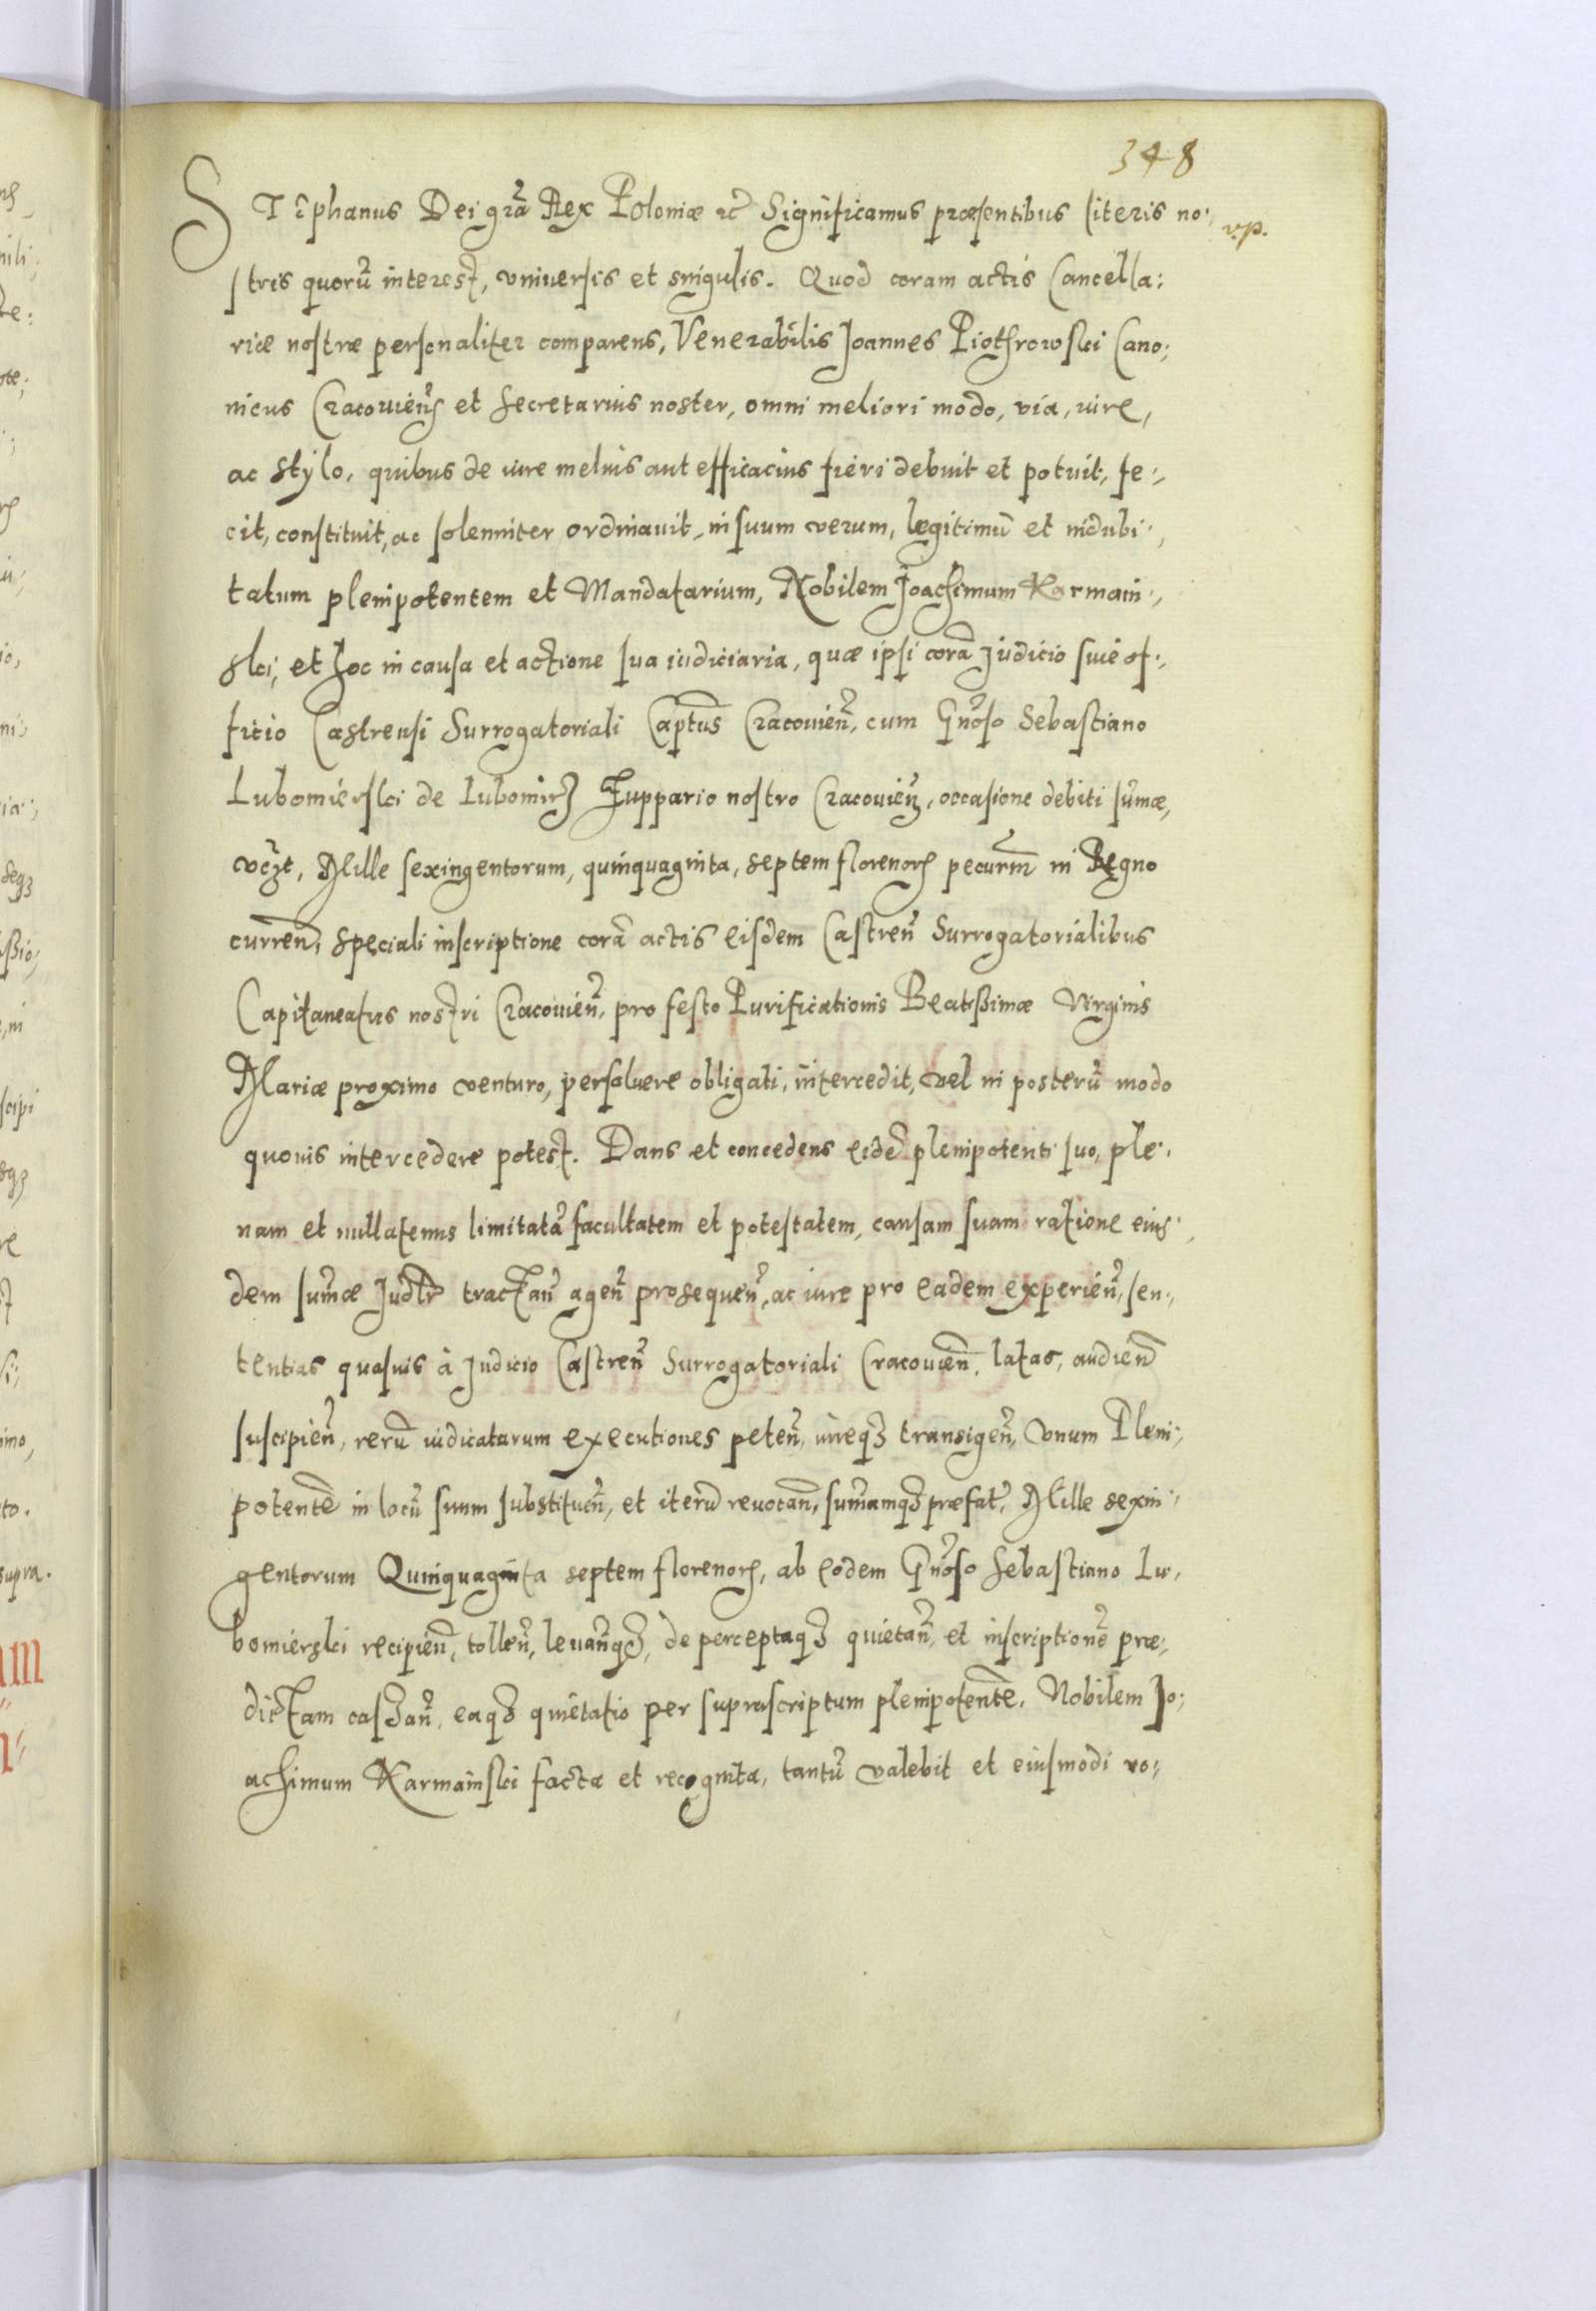 348
STephanus Dei gra͞ Rex Poloniæ etc͞ Significamus præsentibus literis no:
v.p.
stris quorũ interest, vniuersis et singulis. Quod coram actis Cancella:
riæ nostræ personaliter comparens, Venerabilis Joannes Piothrowski Cano:
nicus Cracouien͞s et Secretarius noster, omni meliori modo, via, iure,
ac stylo, quibus de iure melius aut efficacius fieri debuit et potuit, fe:
cit, constituit, ac solenniter ordinauit, in suum verum, legitimũ et indubi:
tatum plenipotentem et Mandatarium, Nobilem Joachimum Karmain:
ski, et hoc in causa et actione sua iudiciaria, quæ ipsi corã Judicio siue of:
ficio Castrensi Surrogatoriali Capt͞us Cracouien͞, cum Gn͞oso Sebastiano
Lubomierski de Lubomirz Zuppario nostro Cracouien͞, occasione debiti sum͞æ,
vcz͞t, Mille sexingentorum, quinquaginta, septem florenorȝ pecun͞m in Regno
curren͞, speciali inscriptione corã actis eisdem Castren͞ Surrogatorialibus
Capitaneatus nostri Cracouien͞, pro festo Purificationis Beatißimæ Virginis
Mariæ proximo venturo, persoluere obligati, intercedit, vel in posterũ modo
quouis intercedere potest. Dans et concedens eidẽ plenipotenti suo, ple:
nam et nullatenus limitatã facultatem et potestatem, causam suam ratione eius:
dem sum͞æ Jud͞lr tractan͞ agen͞ prosequen͞, ac iure pro eadem experien͞, sen:
tentias quasuis à Judicio Castren͞ Surrogatoriali Cracouien͞, latas, audien͞
suscipien͞, rerũ iudicatarum executiones peten͞, iureqȝ transigen͞, vnum Pleni:
potentẽ in locũ suum substituen͞, et iterũ reuocan͞, sum͞amqȝ præfat͞, Mille sexin:
gentorum Quinquaginta septem florenorȝ, ab eodem Gn͞oso Sebastiano Lu:
bomierski recipien͞, tollen͞, leuan͞qȝ, de perceptaqȝ quietan͞, et inscriptionẽ præ:
dictam cassan͞, eaqȝ quietatio per suprascriptum plenipotentẽ, Nobilem Jo:
achimum Karmainski facta et recognita, tantũ valebit et eiusmodi ro: